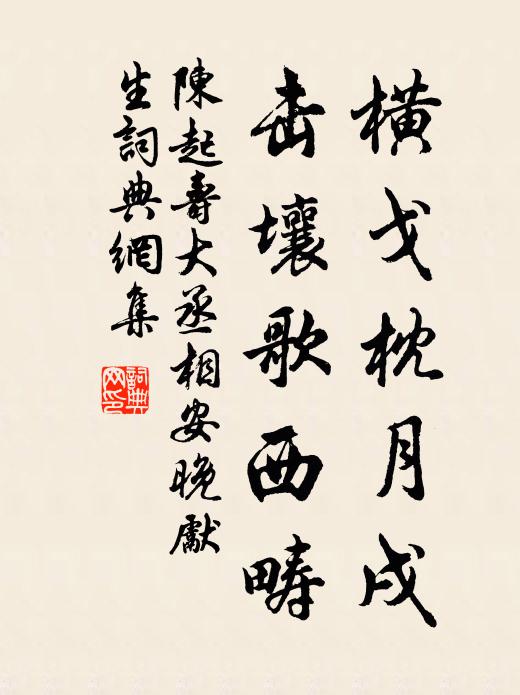 橫戈枕月戍
击壤歌西疇
陳起壽大丞相安晚獻
生詞典網集
詞典網印